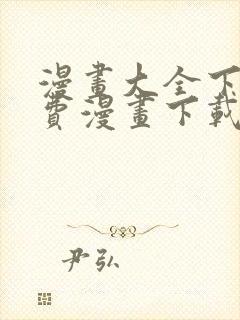 漫畫大全下
費漫畫下載
尹弘